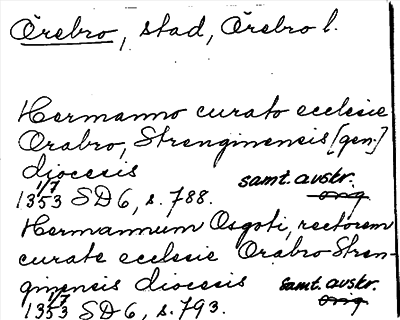 Örebro, stad, Örebro l.
Hermanno curato ecclesie
Orabro, Strenginensis [gen.]
diocesis
samt. avskr.
orig
1/7
1353 SD 6, s. 788.
Hermannum Osgoti, rectorem
curate ecclesie Orabro Stren-
ginensis diocesis samt. avskr.
orig
1/7
1353 SD 6, s. 793.